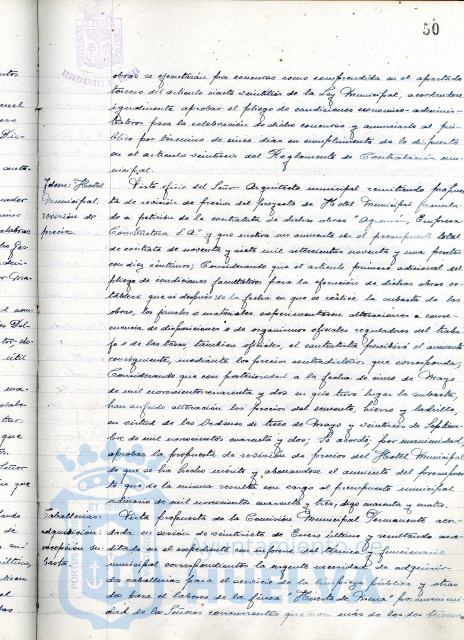 50
obras se ejecutarán por concurso como comprendida en el apartado
tercero del artículo ciento veintitrés de la Ley Municipal, acordándose
igualmente aprobar el pliego de condiciones económico-adminis-
trativas para la celebración de dicho concurso y anunciarlo al pú-
blico por término de cinco días en cumplimiento de lo dispuesto
en el artículo veintiseis del Reglamento de Contratación mu-
nicipal.
Idem: Hotel
Municipal
revisión de
precios.
Visto oficio del Señor Arquitecto municipal remitiendo propues-
ta de revisión de precios del proyecto de Hotel Municipal formula-
da a petición de la contratista de dichas obras "Agromán, Empresa
Constructora S.A." y que motiva un aumento en el presupuesto total
de contrata de noventa y siete mil setecientas noventa y una pesetas
con diez céntimos; Considerando que el artículo primero adicional del
pliego de condiciones facultativas para la ejecución de dichas obras es-
tablece que si después de la fecha en que se realice la subasta de las
obras, los jornales o materiales experimentaran alteraciones a conse-
cuencia de disposiciones o de organismos oficiales reguladores del traba-
jo o de las tasas, también oficiales, el contratista percibirá el aumento
consiguiente, mediante los precios contradictorios que correspondan;
Considerando que con posterioridad a la fecha de cinco de Mayo
de mil novecientos cuarenta y dos en que tuvo lugar la subasta,
han sufrido alteración los precios del cemento, hierro y ladrillo,
en virtud de las Ordenes de trece de Mayo y veintiuno de Septiem-
bre de mil novecientos cuarenta y dos; Se acordó, por unanimidad,
aprobar la propuesta de revisión de precios del Hotel Municipal
de que se ha hecho mérito y abonándose el aumento del presupues-
to que de la misma resulta con cargo al presupuesto municipal
ordinario de mil novecientos cuarenta y tres, digo cuarenta y cuatro.
Caballerías:
adquisición
excepción su-
basta.
Vista propuesta de la Comisión Municipal Permanente acor-
dada en sesión de veintisiete de Enero último y resultando acre-
ditado en el expediente con informe del técnico y funcionario
municipal correspondientes la urgente necesidad de adquirir
dos caballerías para el servicio de la limpieza pública y otras
dos para el laboreo de la finca "Huerta de Mena" por unanimi-
dad de los Señores concurrentes que son más de los dos tercios